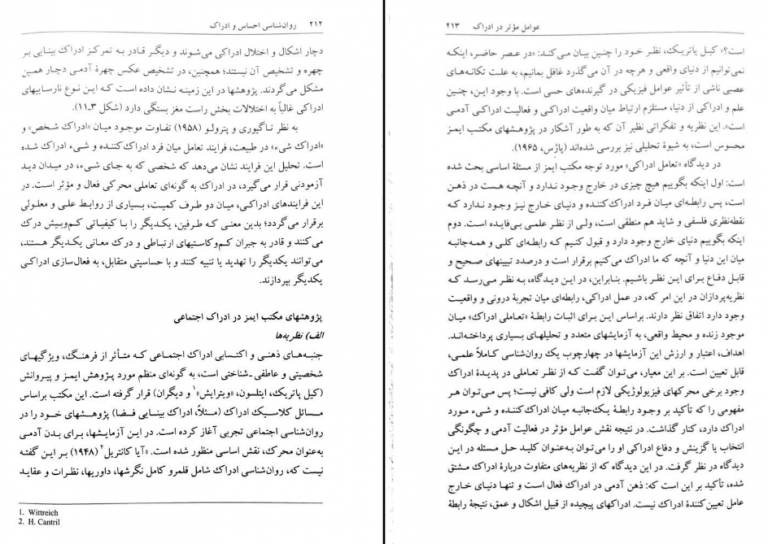 ۲۱۲ روان‌شناسی احساس و ادراك
دچار اشكال و اختلال ادراكی می‌شوند و ديگر قادر به تمركز ادراك بينايی بر
چهره و تشخيص آن نيستند؛ همچنين، در تشخيص عكس چهرهٔ آدمی دچار همين
مشكل می‌گردند. پژوهشها در اين زمينه نشان داده است كه اين نوع نارساييهای
ادراكی غالباً به اختلالات بخش راست مغز بستگی دارد (شكل ۱۱.۳)
به نظر تاگيوری و پترولو (۱۹۵۸) تفاوت موجود ميان «ادراك شخص» و
«ادراك شیء» در طبيعت، فرايند تعامل ميان فرد ادراك كننده و شیء ادراك شده
است. تحليل اين فرايند نشان می‌دهد كه شخصی كه به جای شیء، در ميدان ديد
آزمودنی قرار می‌گيرد، در ادراك به گونه‌ای تعاملی محركی فعال و مؤثر است. در
اين فرايندهای ادراكی، ميان دو طرف كميت، بسياری از روابط علی و معلولی
برقرار می‌گردد؛ بدين معنی كه طرفين، يكديگر را با كيفياتی كم‌وبيش درك
می‌كنند و قادر به جبران كم‌وكاستيهای ارتباطی و درك معانی يكديگر هستند،
می‌توانند يكديگر را تهديد يا تنبيه كنند و با حساسيتی متقابل، به فعال‌سازی ادراكی
يكديگر بپردازند.
پژوهشهای مكتب ايمز در ادراك اجتماعی
الف) نظريه‌ها
جنبه‌های ذهنی و اكتسابی ادراك اجتماعی كه متأثر از فرهنگ، ويژگيهای
شخصيتی و عاطفی-شناختی است، به گونه‌ای منظم مورد پژوهش ايمز و پيروانش
(كيل پاتريك، ايتلسون، «ويترايش»۱ و ديگران) قرار گرفته است. اين مكتب براساس
مسائل كلاسيك ادراك (مثلاً، ادراك بينايی فضا) پژوهشهای خود را در
روان‌شناسی اجتماعی تجربی آغاز كرده است. در اين آزمايشها، برای بدن آدمی
به‌عنوان محرك، نقش اساسی منظور شده است. «آيا كانتريل»۲ (۱۹۴۸) بر اين گفته
نيست كه، روان‌شناسی ادراك شامل قلمرو كامل نگرشها، داوريها، نظرات و عقايد
1. Wittreich
2. H. Cantril
عوامل مؤثر در ادراك ۲۱۳
است؟» كيل پاتريك، نظر خود را چنين بيان می‌كند: «در عصر حاضر، اينكه
نمی‌توانيم از دنيای واقعی و هرچه در آن می‌گذرد غافل بمانيم، به علت تكانه‌های
عصبی ناشی از تأثير عوامل فيزيكی در گيرنده‌های حسی است. با وجود اين، چنين
علم و ادراكی از دنيا، مستلزم ارتباط ميان واقعيت ادراكی و فعاليت ادراكی آدمی
است». اين نظريه و تفكراتی نظير آن كه به طور آشكار در پژوهشهای مكتب ايمز
محسوس است، به شيوهٔ تحليلی نيز بررسی شده‌اند (پاژس، ۱۹۶۵).
در ديدگاه «تعامل ادراكی» مورد توجه مكتب ايمز از مسئلهٔ اساسی بحث شده
است: اول اينكه بگوييم هيچ چيزی در خارج وجود ندارد و آنچه هست در ذهن
است، پس رابطه‌ای ميان فرد ادراك كننده و دنيای خارج نيز وجود ندارد كه
نقطه‌نظری فلسفی و شايد هم منطقی است، ولی از نظر علمی بی‌فايده است. دوم
اينكه بگوييم دنيای خارج وجود دارد و قبول كنيم كه رابطه‌ای كلی و همه‌جانبه
ميان اين دنيا و آنچه كه ما ادراك می‌كنيم برقرار است و درصدد تبيينهای صحيح و
قابل دفاع برای اين نظر باشيم. بنابراين، در اين ديدگاه، به نظر می‌رسد كه
نظريه‌پردازان در اين امر كه، در عمل ادراكی، رابطه‌ای ميان تجربهٔ درونی و واقعيت
وجود دارد اتفاق نظر دارند. براساس اين برای اثبات رابطهٔ «تعاملی ادراك» ميان
موجود زنده و محيط واقعی، به آزمايشهای متعدد و تحليلهای بسياری پرداخته‌اند.
اهداف، اعتبار و ارزش اين آزمايشها در چهارچوب يك روان‌شناسی كاملاً علمی،
قابل تعيين است. بر اين معيار، می‌توان گفت كه از نظر تعاملی در پديدهٔ ادراك
وجود برخی محركهای فيزيولوژيكی لازم است ولی كافی نيست؛ پس می‌توان هر
مفهومی را كه تأكيد بر وجود رابطهٔ يك‌جانبه ميان ادراك‌كننده و شیء مورد
ادراك دارد، كنار گذاشت. در نتيجه نقش عوامل مؤثر در فعاليت آدمی و چگونگی
انتخاب يا گزينش و دفاع ادراكی او را می‌توان به‌عنوان كليد حل مسئله در اين
ديدگاه در نظر گرفت. در اين ديدگاه كه از نظريه‌های متفاوت دربارهٔ ادراك مشتق
شده، تأكيد بر اين است كه: ذهن آدمی در ادراك فعال است و تنها دنيای خارج
عامل تعيين‌كنندهٔ ادراك نيست. ادراكهای پيچيده از قبيل اشكال و عمق، نتيجهٔ رابطهٔ